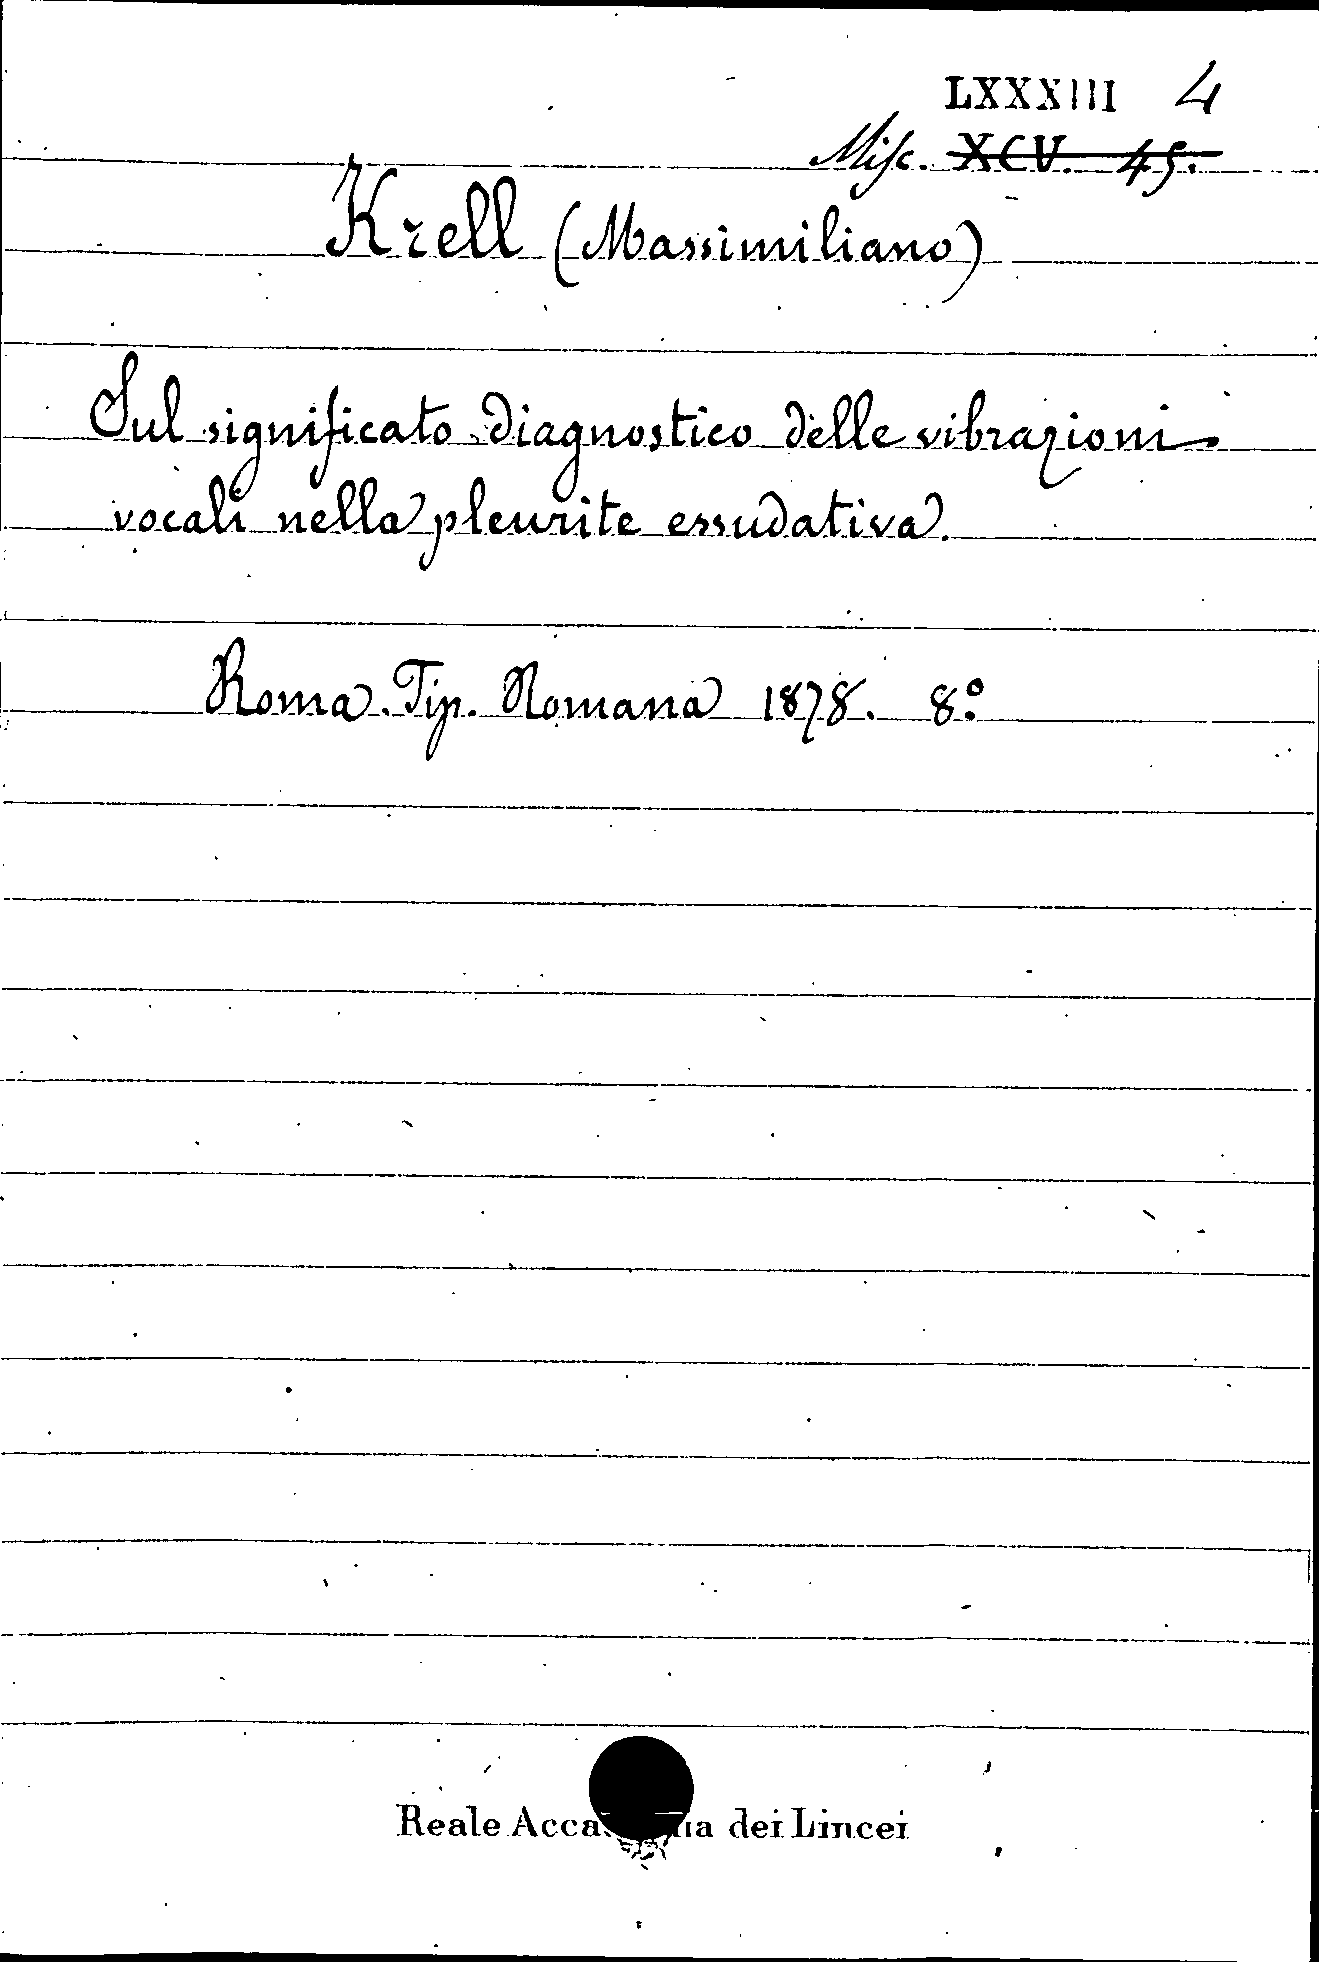 LXXXIII 4
Misc. XCV. 45.
Krell (Massimiliano)
Sul significato diagnostico delle vibrazioni
vocali nella pleurite essudativa.
Roma. Tip. Romana 1878. 8.º
Reale dei Lincei